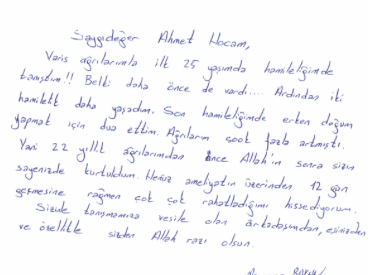 Saygıdeğer Ahmet Hocam,
Varis ağrılarımla ilk 25 yaşımda hamileliğimde
tanıştım!! Belki daha önce de vardı.... Ardından iki
hamilelik daha yaşadım. Son hamileliğimde erken doğum
yapmak için dua ettim. Ağrılarım çook fazla artmıştı.
Yani 22 yıllık ağrılarımdan önce Allah'ın sonra sizin
sayenizde kurtuldum. Henüz ameliyatın üzerinden 12 gün
geçmesine rağmen çok çok rahatladığımı hissediyorum.
Sizinle tanışmamıza vesile olan arkadaşımdan, eşinizden
ve özellikle sizden Allah razı olsun.